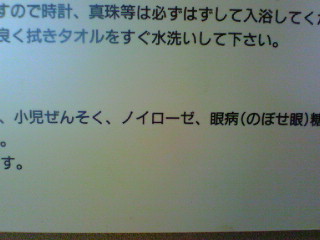 すので時計、真珠等は必ずはずして入浴してくだ
良く拭きタオルをすぐ水洗いして下さい。
、小児ぜんそく、ノイローゼ、眼病(のぼせ眼)糖
。
す。